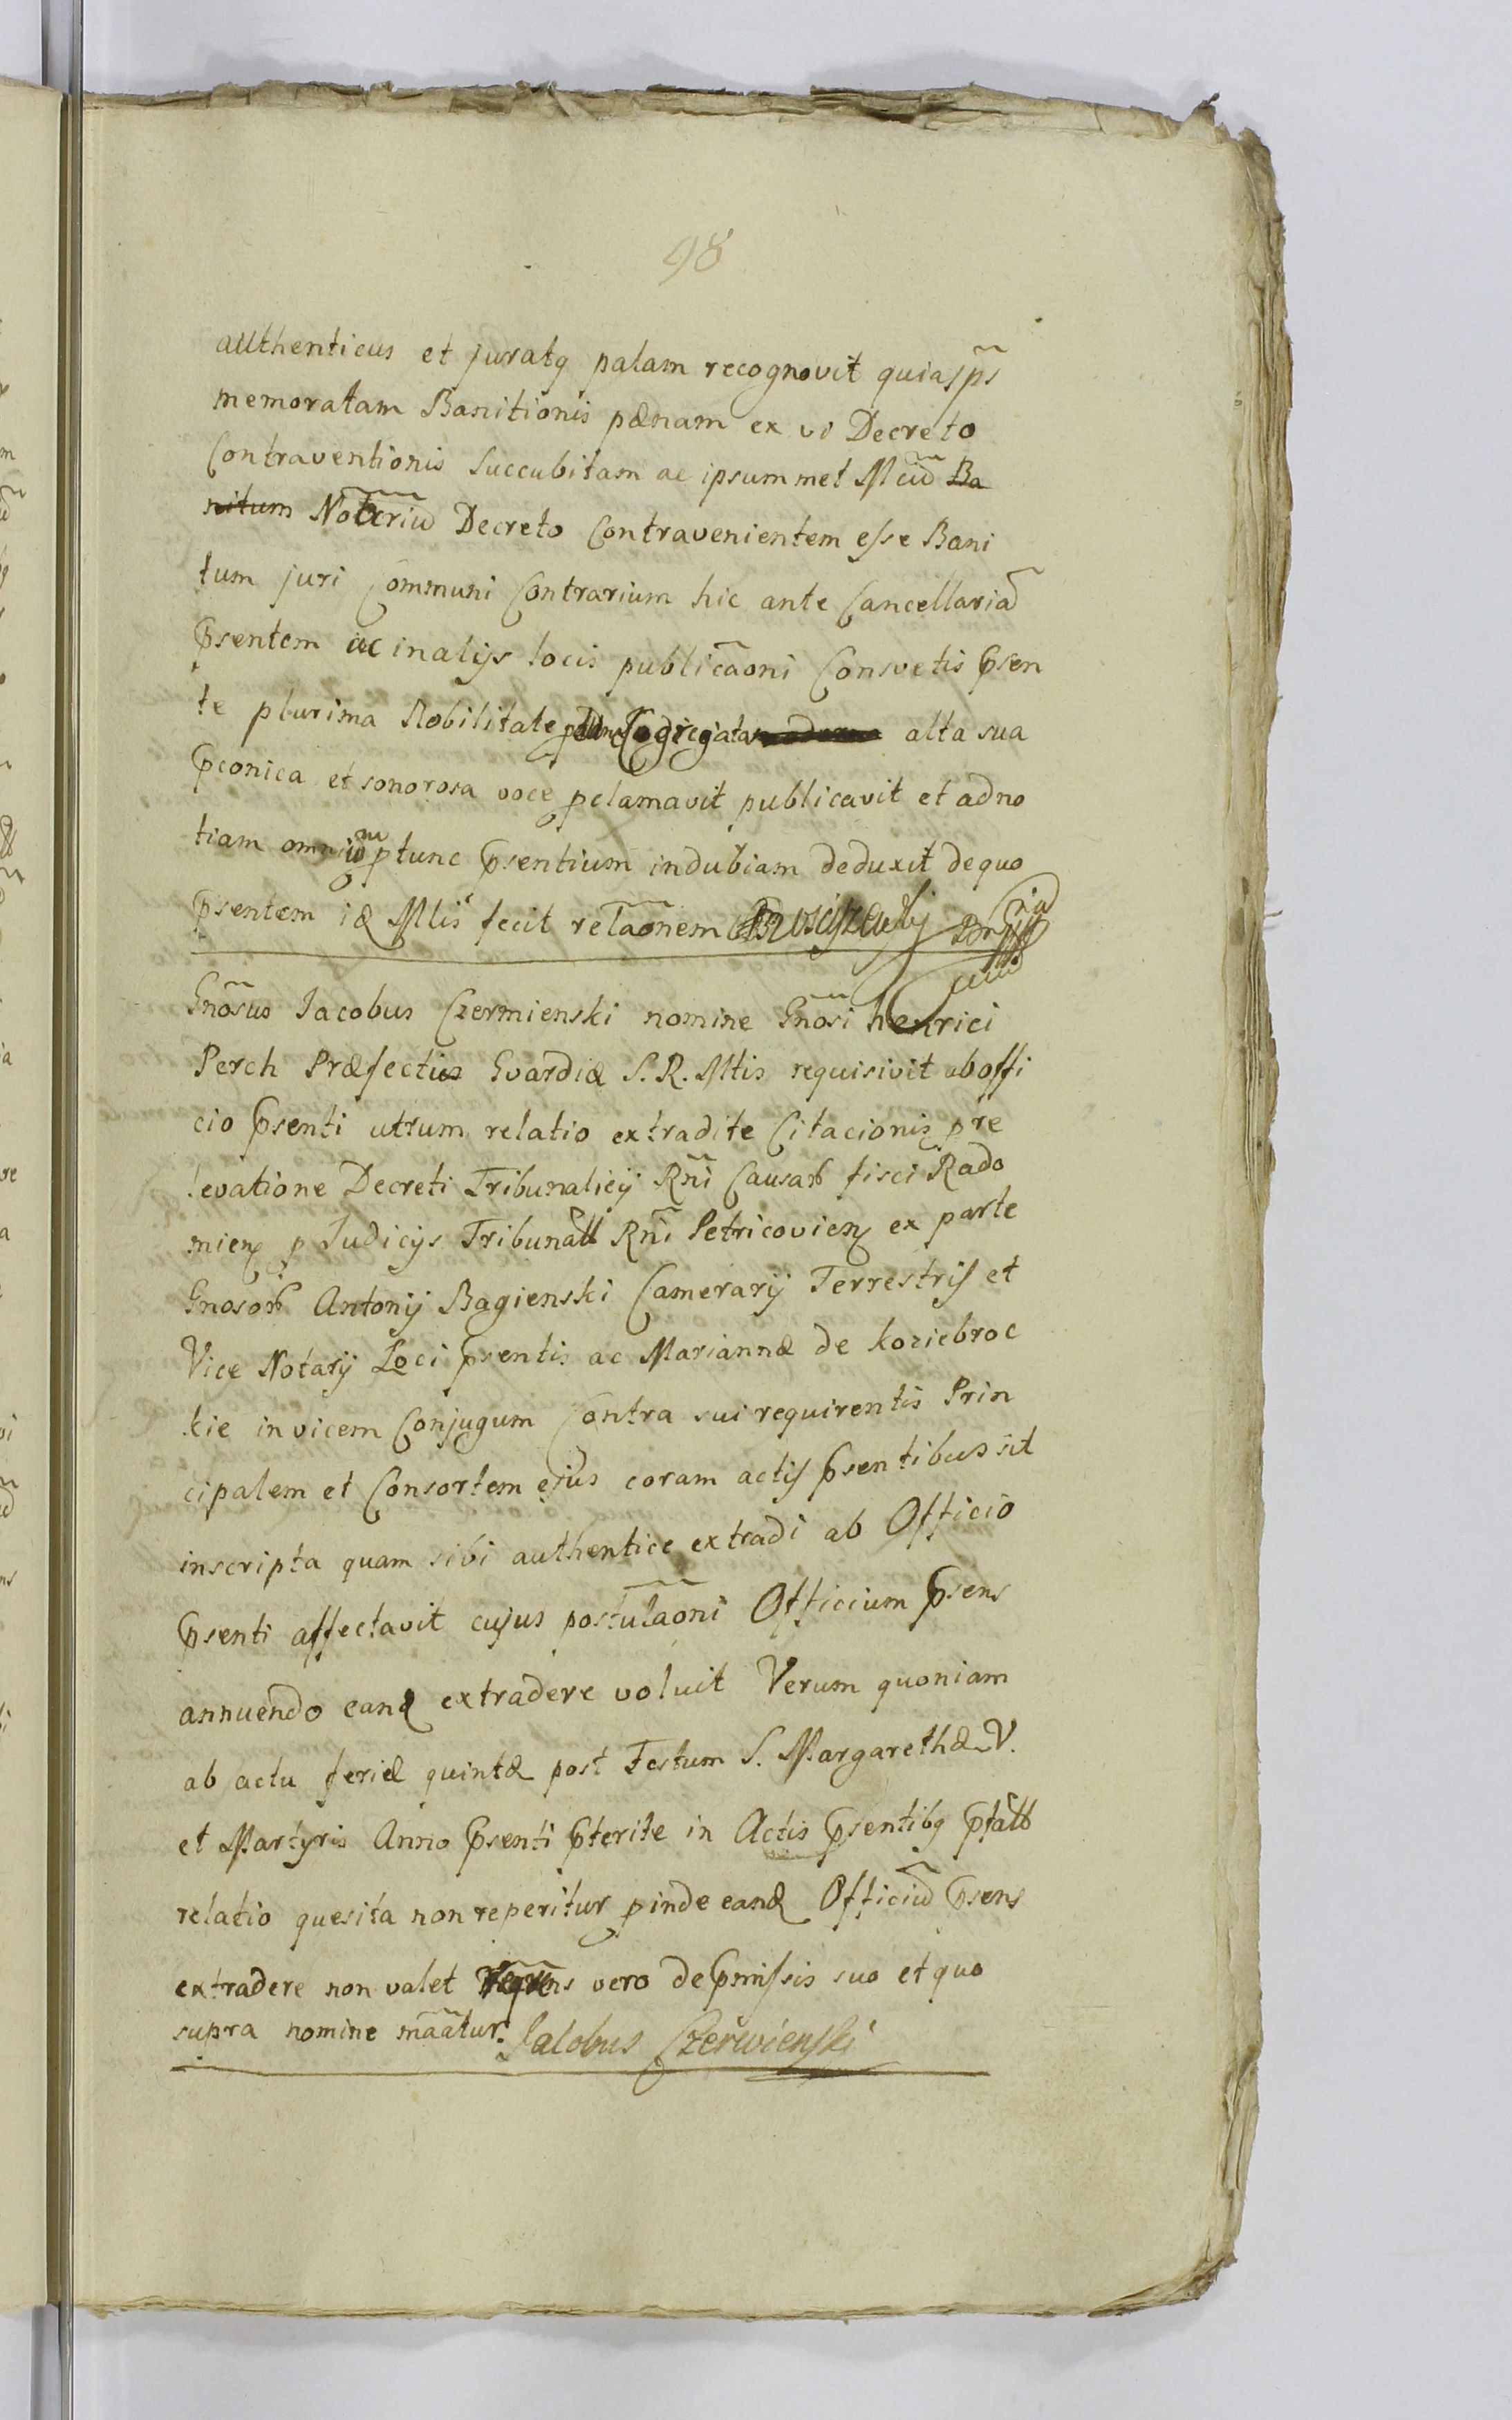 98
authenticus et juratq palam recognovit quia
memoratam Banitionis pænam ex vi Decreto
Contraventionis Succubitam ac ipsummet Mcũ Ba
nitum Notõriũ Decreto Contravenientem esse Bani
tum juri Communi Contrarium hic ante Cancellariã
Psentem ac in alijs locis publicãoni Consvetis Psen
te plurima Nobilitate Cogregata alta sua
Pconica et sonorosa voce pclamavit publicavit et ad no
tiam omnium ptunc Psentium indubiam deduxit de quo
Psentem id Mlis fecit relãonem
Gnõsus Jacobus Czermienski nomine Gnõsi Henrici
Perch Præfectus Gvardiæ S. R. Mtis requisivit ab offi
cio Psenti utrum relatio extradite Citacionis pre
levatione Decreti Tribunalicij Rñi Causarb fisci Rado
mien p Judicijs Tribunall Rñi Petricovien ex parte
Gnosorb Antonij Bagienski Camerarij Terrestris et
Vice Notarij Loci Psentis ac Mariannæ de Koziebroc
kie invicem Conjugum Contra sui requirentis Prin
cipalem et Consortem ejus coram actis Psentibus sit
inscripta quam sibi authentice extradi ab Officio
Psenti affectavit cujus postulãoni Officium Psens
annuendo eand extradere voluit Verum quoniam
ab actu feriæ quintæ post Festum S. Margarethæ V.
et Martyris Anno Psenti Pterite in Actis Psentibq Ptall
relatio quesita non reperitur pinde eand Officiũ Psens
extradere non valet Reqrens vero de Pmissis suo et quo
supra nomine mãatur. Jacobus Czerwienski